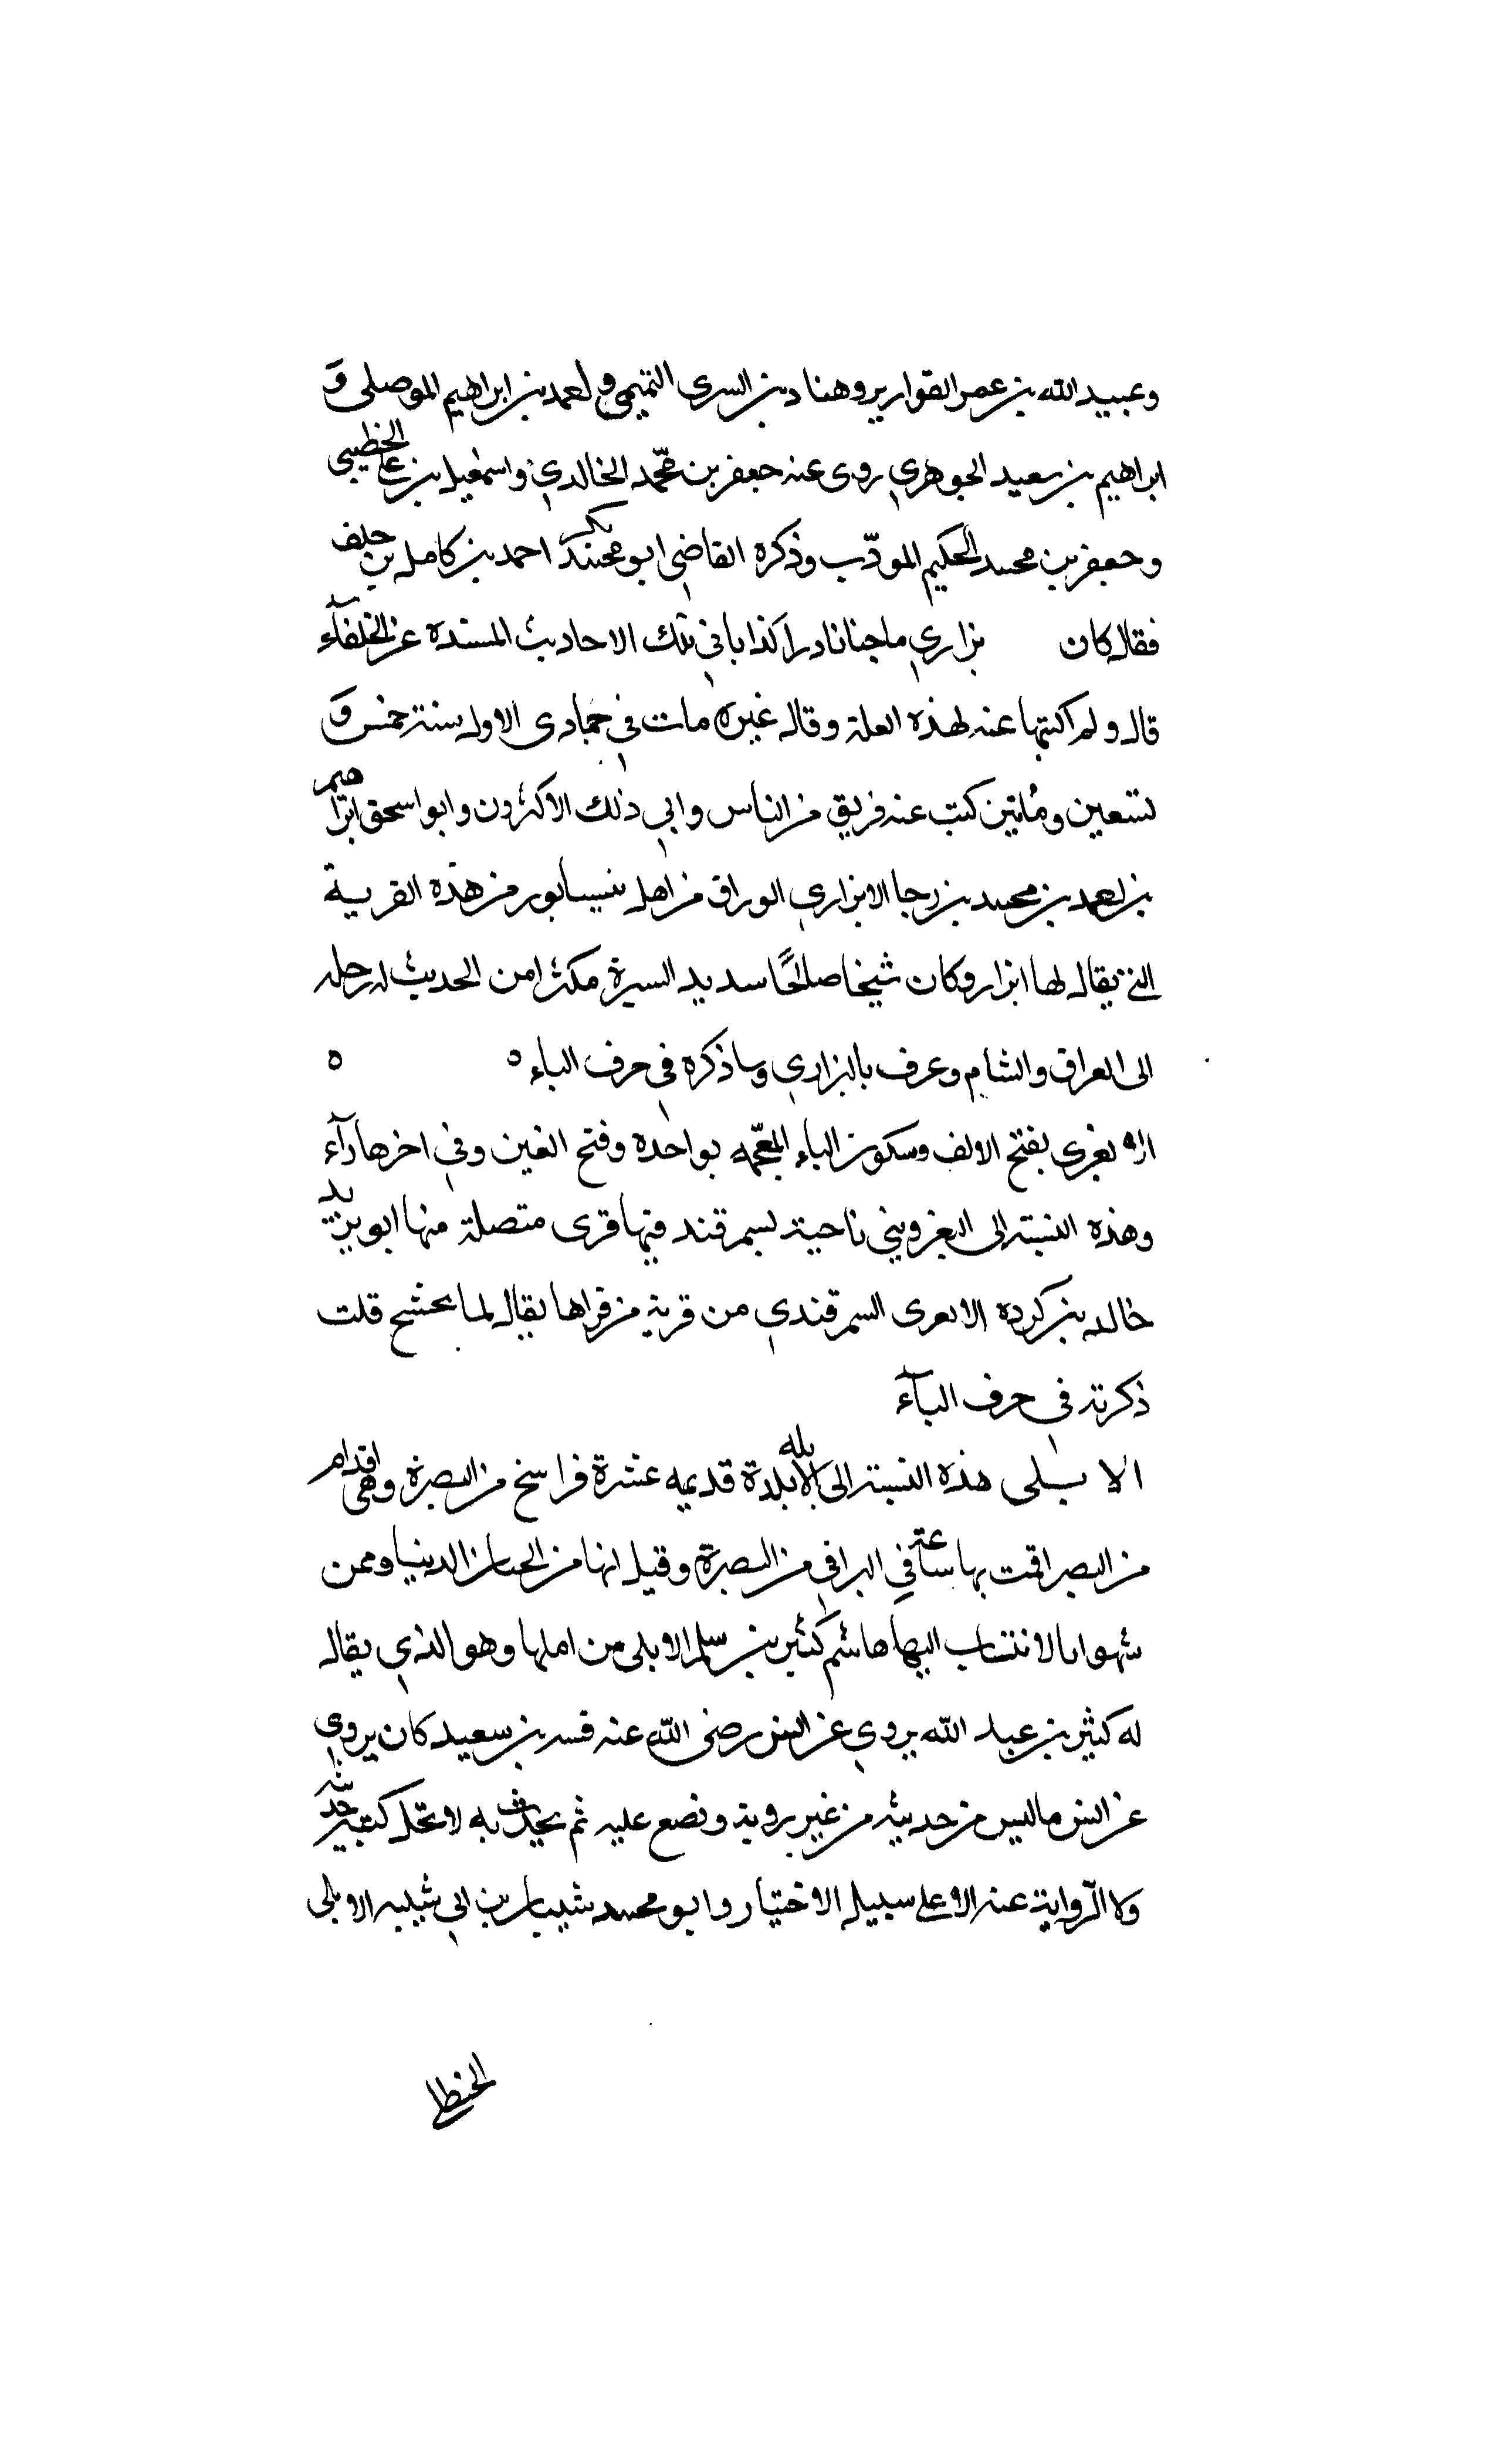 وعبيد الله بن عمر القواريرو هناد بن السرى التميمى و احمد بن ابراهيم الموصلى و
ابراهيم بن سعيد الجوهري روى عنه جعفر بن محمد الخالدي واسمعيل بن على الخطيبى
وجعفر بن محمد الحكيم المودّب وذكره القاضى ابو بكر احمد بن كامل بن خلف
فقال كان بزاري ماجنا نادرا كذابا في تلك الاحاديث المسنده عن الخلفآء
قال ولم اكتبها عنه لهذه العلة وقال غيره مات في جمادى الاول سنة خمس و
تسعين ومأتين كتب عنه فريق من الناس وابي ذلك الاكثرون وابو اسحق ابراهيم
بن احمد بن محمد بن رجا الابزاري الوراق من اهل نيسابور من هذه القرية
التى يقال لها ابزار وكان شيخا صالحًا سديد السيرة مكثرا من الحديث له رحله
الى العراق والشام وعرف بالبزاري وساذكره في حرف الباء ه ه
الابغرى بفتح الالف وسكون الباء المعجمه بواحدة وفتح الغين وفي اخرها رآء
وهذه النسبة الى ابغر وهي ناحية بسمرقند فيها قرى متصلة منها ابو يزيد
خالد بن كرده الابغرى السمرقندي من قرية من قراها يقال لها بخشح قلت
ذكرته فى حرف البآء
الابلى هذه النسبة الى الابله بلدة قديمه عشرة فراسخ من البصرة وهى اقدام
من البصر اقمت بها ساعة في البرا في من البصرة وقيل انها من الجنان الدنيا وممن
شهوا بالانتساب اليها هاشم كثير بن سلم الابلى من اهلها وهو الذي يقال
له كثير بن عبد الله يروي عن انس رضى الله عنه قسه بن سعيد كان يروي
عن انس ماليس من حديثه من غير روية ونصع عليه ثم يحدث به لا تحل كتبه حديثه
ولا الرواية عنه الا على سبيل الاختيار وابو محمد شيبان بن ابي شيبه الابلى
الحنظلى